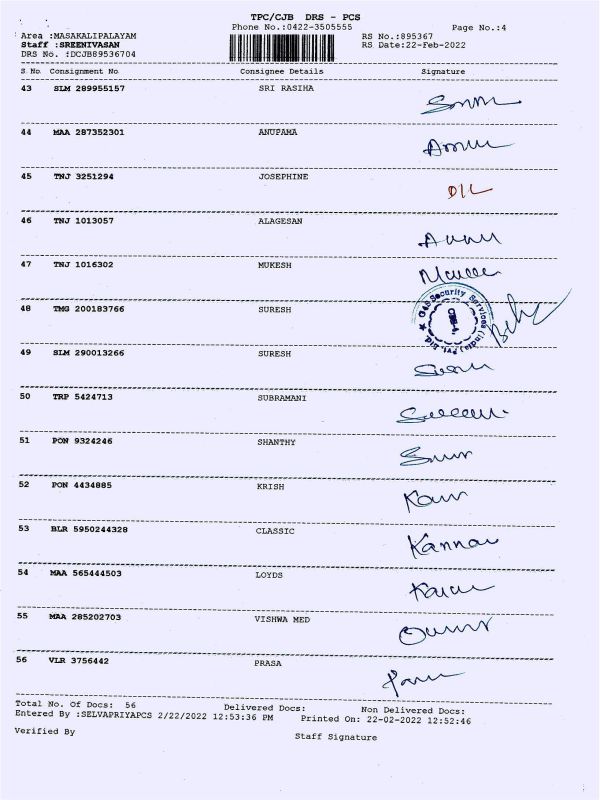 TPC/CJB DRS - PCS
Phone No.:0422-3505555 Page No.:4
Area :MASAKALIPALAYAM RS No.:895367
Staff :SREENIVASAN RS Date:22-Feb-2022
DRS No. :DCJB89536704
S No Consignment No Consignee Details Signature
43 SLM 289955157 SRI RASIHA
44 MAA 287352301 ANUPAMA
45 TNJ 3251294 JOSEPHINE
D/L
46 TNJ 1013057 ALAGESAN
47 TNJ 1016302 MUKESH
48 TMG 200183766 SURESH
G4S Security Services (India) Pvt. Ltd.
49 SLM 290013266 SURESH
50 TRP 5424713 SUBRAMANI
51 PON 9324246 SHANTHY
52 PON 4434885 KRISH
53 BLR 5950244328 CLASSIC
Kannan
54 MAA 565444503 LOYDS
55 MAA 285202703 VISHWA MED
56 VLR 3756442 PRASA
Total No. Of Docs: 56 Delivered Docs: Non Delivered Docs:
Entered By :SELVAPRIYAPCS 2/22/2022 12:53:36 PM Printed On: 22-02-2022 12:52:46
Verified By Staff Signature